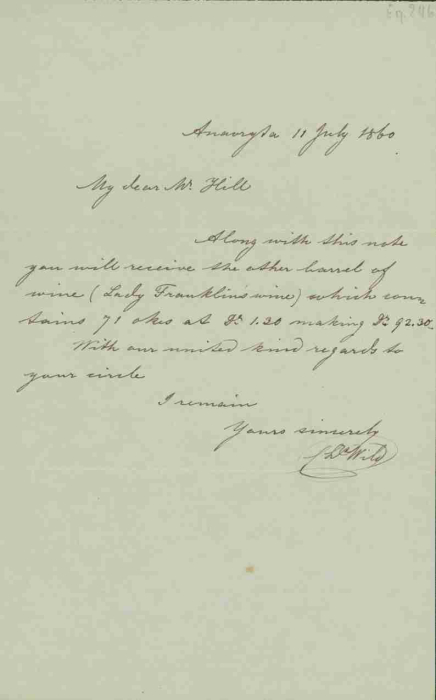 Anavryta 11 July 1860
My dear Mr. Hill
Along with this note
you will receive the other barrel of
wine (Lady Franklin's wine) which con-
tains 71 okes at Dr. 1.30 making Dr. 92.30
With our united kind regards to
your circle
I remain
Yours sincerely